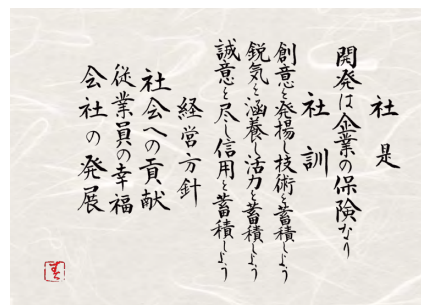 社是
開発は企業の保険なり
社訓
創意を発揚し技術を蓄積しよう
鋭気を涵養し活力を蓄積しよう
誠意を尽し信用を蓄積しよう
経営方針
社会への貢献
従業員の幸福
会社の発展